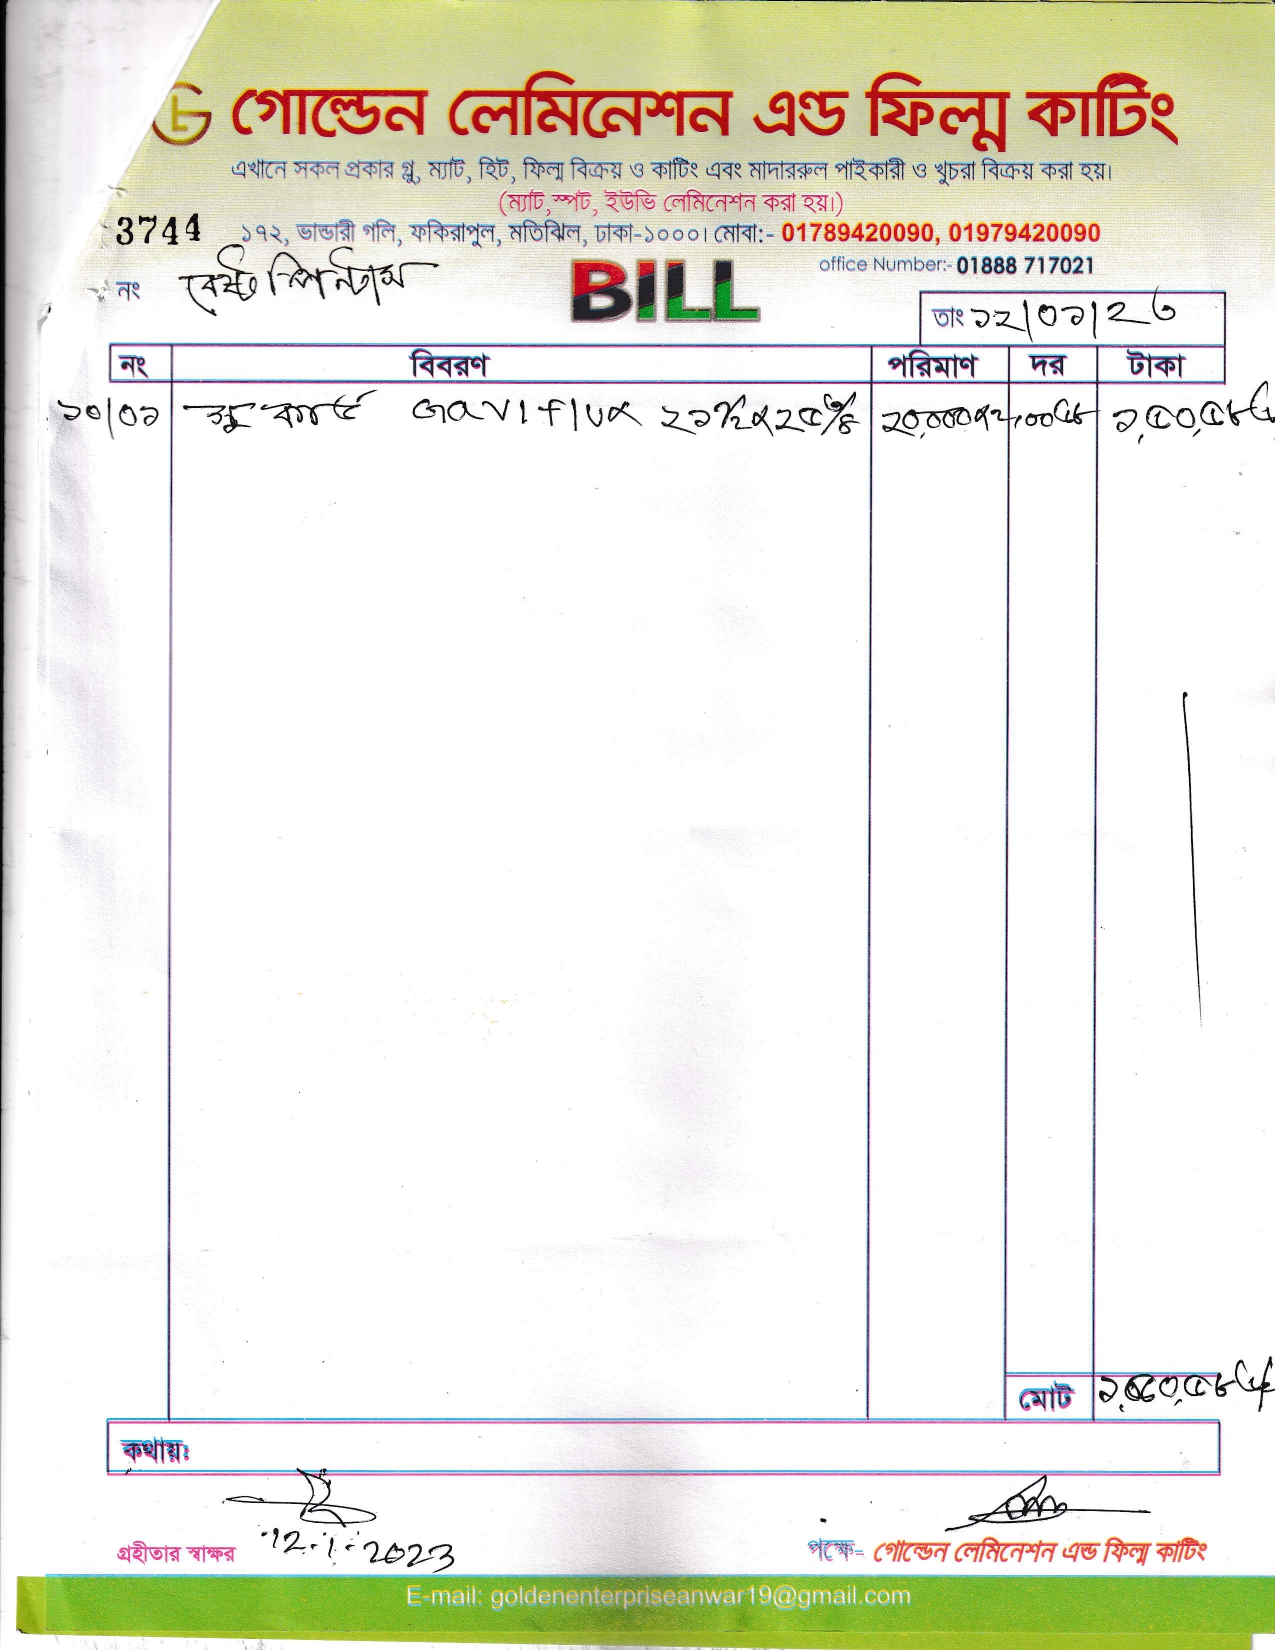 গোল্ডেন লেমিনেশন এন্ড ফিল্ম কাটিং
এখানে সকল প্রকার গ্লু, ম্যাট, হিট, ফিল্ম বিক্রয় ও কাটিং এবং মাদাররুল পাইকারী ও খুচরা বিক্রয় করা হয়।
(ম্যাট,স্পট, ইউভি লেমিনেশন করা হয়।)
3744 ১৭২, ভান্ডারী গলি, ফকিরাপুল, মতিঝিল, ঢাকা-১০০০। মোবা:- 01789420090, 01979420090
office Number:- 01888 717021
নং
BILL
তাং ১২/০১/২৩
নং বিবরণ পরিমাণ দর টাকা
১০/০১ কার্ড Gaviflux ২০,০০০
মোট
কথায়ঃ
গ্রহীতার স্বাক্ষর 12.1.2023
পক্ষে- গোল্ডেন লেমিনেশন এন্ড ফিল্ম কাটিং
E-mail: goldenenterpriseanwar19@gmail.com